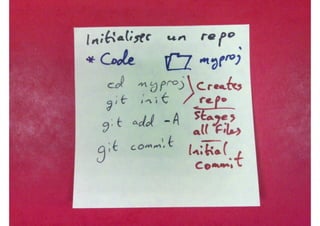 Initialiser un repo
* Code myproj
cd myproj
git init
Creates
repo
git add -A
Stages
all files
git commit
Initial
Commit